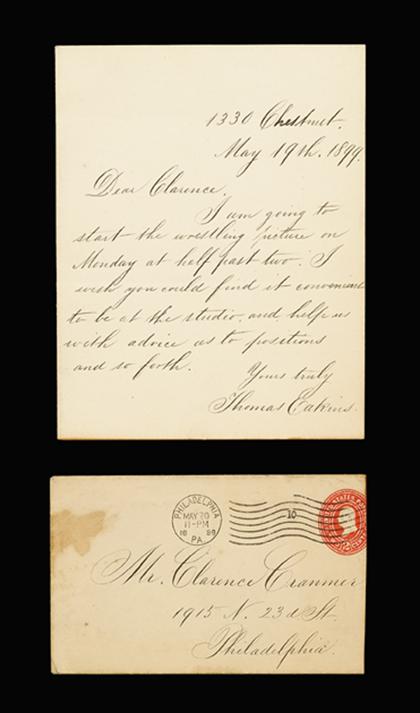 1330 Chestnut.
May 19th. 1899.
Dear Clarence.
I am going to
start the wrestling picture on
Monday at half past two. I
wish you could find it convenient
to be at the studio and help us
with advice as to positions
and so forth.
Yours truly
Thomas Eakins.
PHILADELPHIA
MAY 20
11-PM
18 99
PA.
10
UNITED STATES POSTAGE
2 CENTS
Mr. Clarence Cranmer
1915 N. 23d St.
Philadelphia.